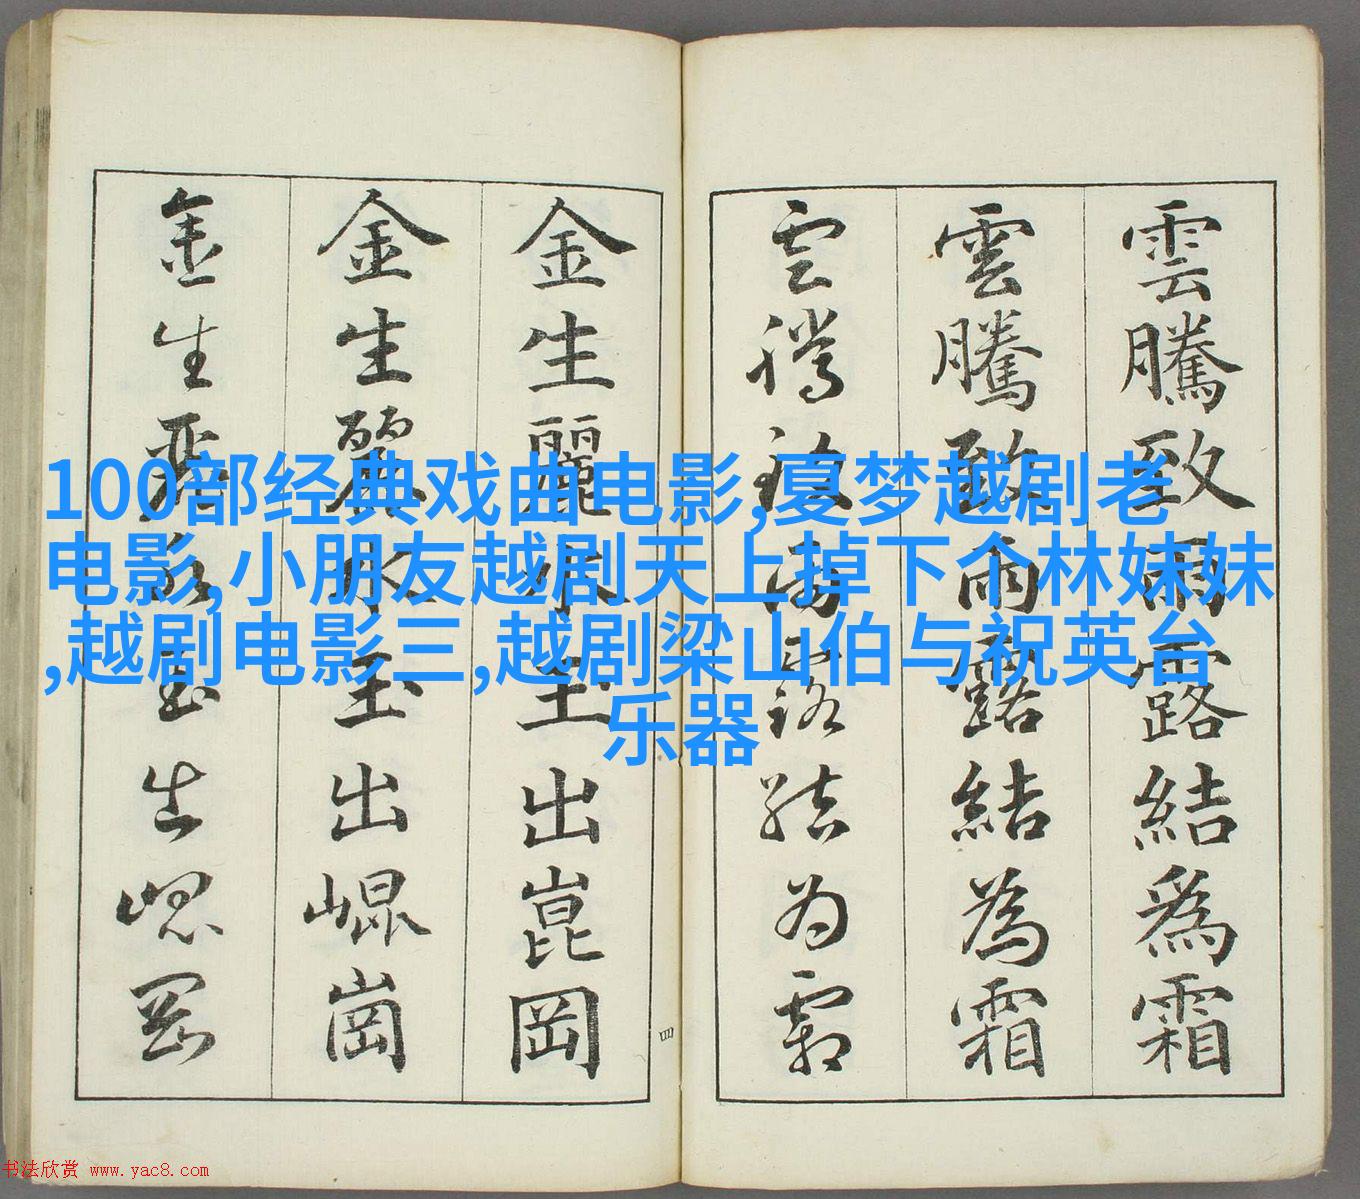 雲騰致雨露結為霜
雲騰致雨露結為霜
雲騰致雨露結為霜
金生麗水玉出崑岡
金生麗水玉出崐崗
金生麗水玉出崐岡
四
100部经典戏曲电影,夏梦越剧老
电影,小朋友越剧天上掉下个林妹妹
,越剧电影三,越剧梁山伯与祝英台
乐器
书法欣赏 www.yac8.com